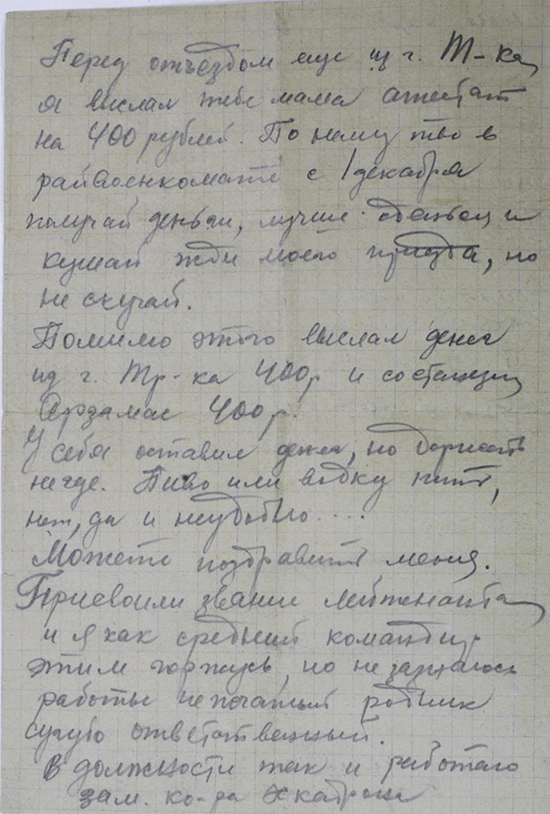 Перед отъездом еще из г. Т-ка
я выслал тебе мама атестат
на 400 рублей. По нему тво в
райвоенкомате с 1 декабря
получай деньги, лучше оденься и
кушай жди моего приезда, но
не скучай.
Помимо этого выслал денег
из г. Тр-ка 400р и со станции
Арзамас 400р.
У себя оставил денег, но
негде. Пиво или водку пить,
нет, да и неудобно....
Можете поздравить меня.
Присвоили звание лейтенанта
и я как средний командир
этим горжусь, но не зазнаюсь
работы непочатый
сугубо ответственный.
В должности так и работаю
зам. ко-ра эскадрона